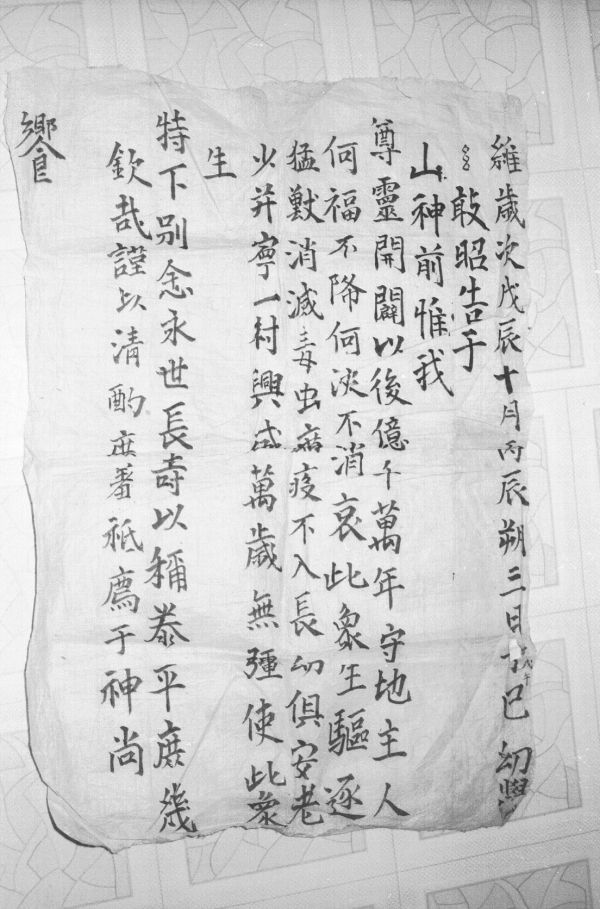 維歲次戊辰十月丙辰朔三日巳幼學
敢昭告于
山神前惟我
尊靈開闢以後億千萬年守地主人
何福不降何灾不消哀此衆生驅逐
猛獸消滅毒虫病疫不入長幼俱安老
少并寧一村興盛萬歲無彊使此衆
生
特下别念永世長壽以稱泰平庶幾
欽哉謹以清酌庶羞祗薦于神尚
饗